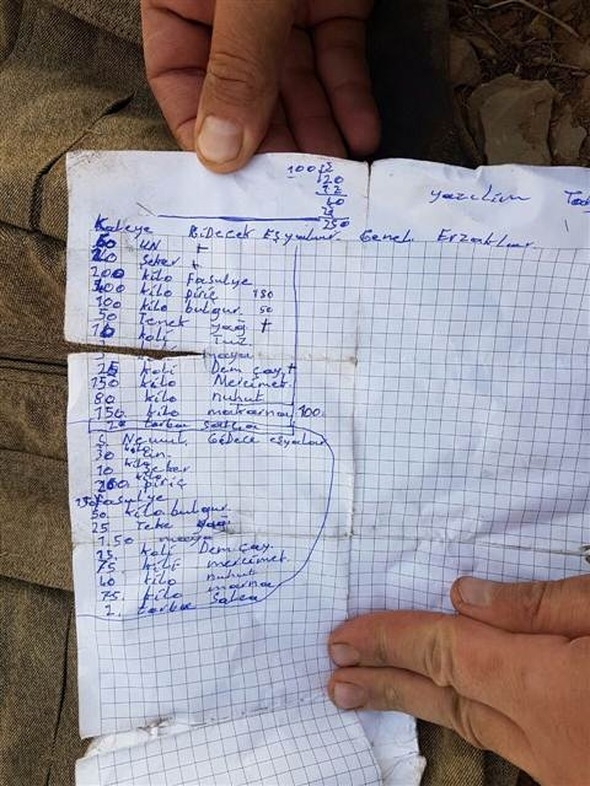 100
20
12
60
250
yazılım
Kaleye Gidecek Eşyalar. Genel Erzaklar
60 UN +
20 Şeker +
200 kilo Fasulye
kilo piriç 150
100 kilo bulgur. 50
50 Tenek yağ +
10 koli Tuz
maya
25 koli Dem çay +
150 kilo Mercimek.
80 kilo nuhut
150. kilo makarna 100.
torba salça
Gidece eşyalar
30 un.
10 kilo şeker
200. kilo piriç
fasulye
50. kilo bulgur
25 Teke yağ
1.50 maya
25. koli Dem çay.
75. mercimek.
40 kilo nuhut
75. kilo marna
2. torba Salça